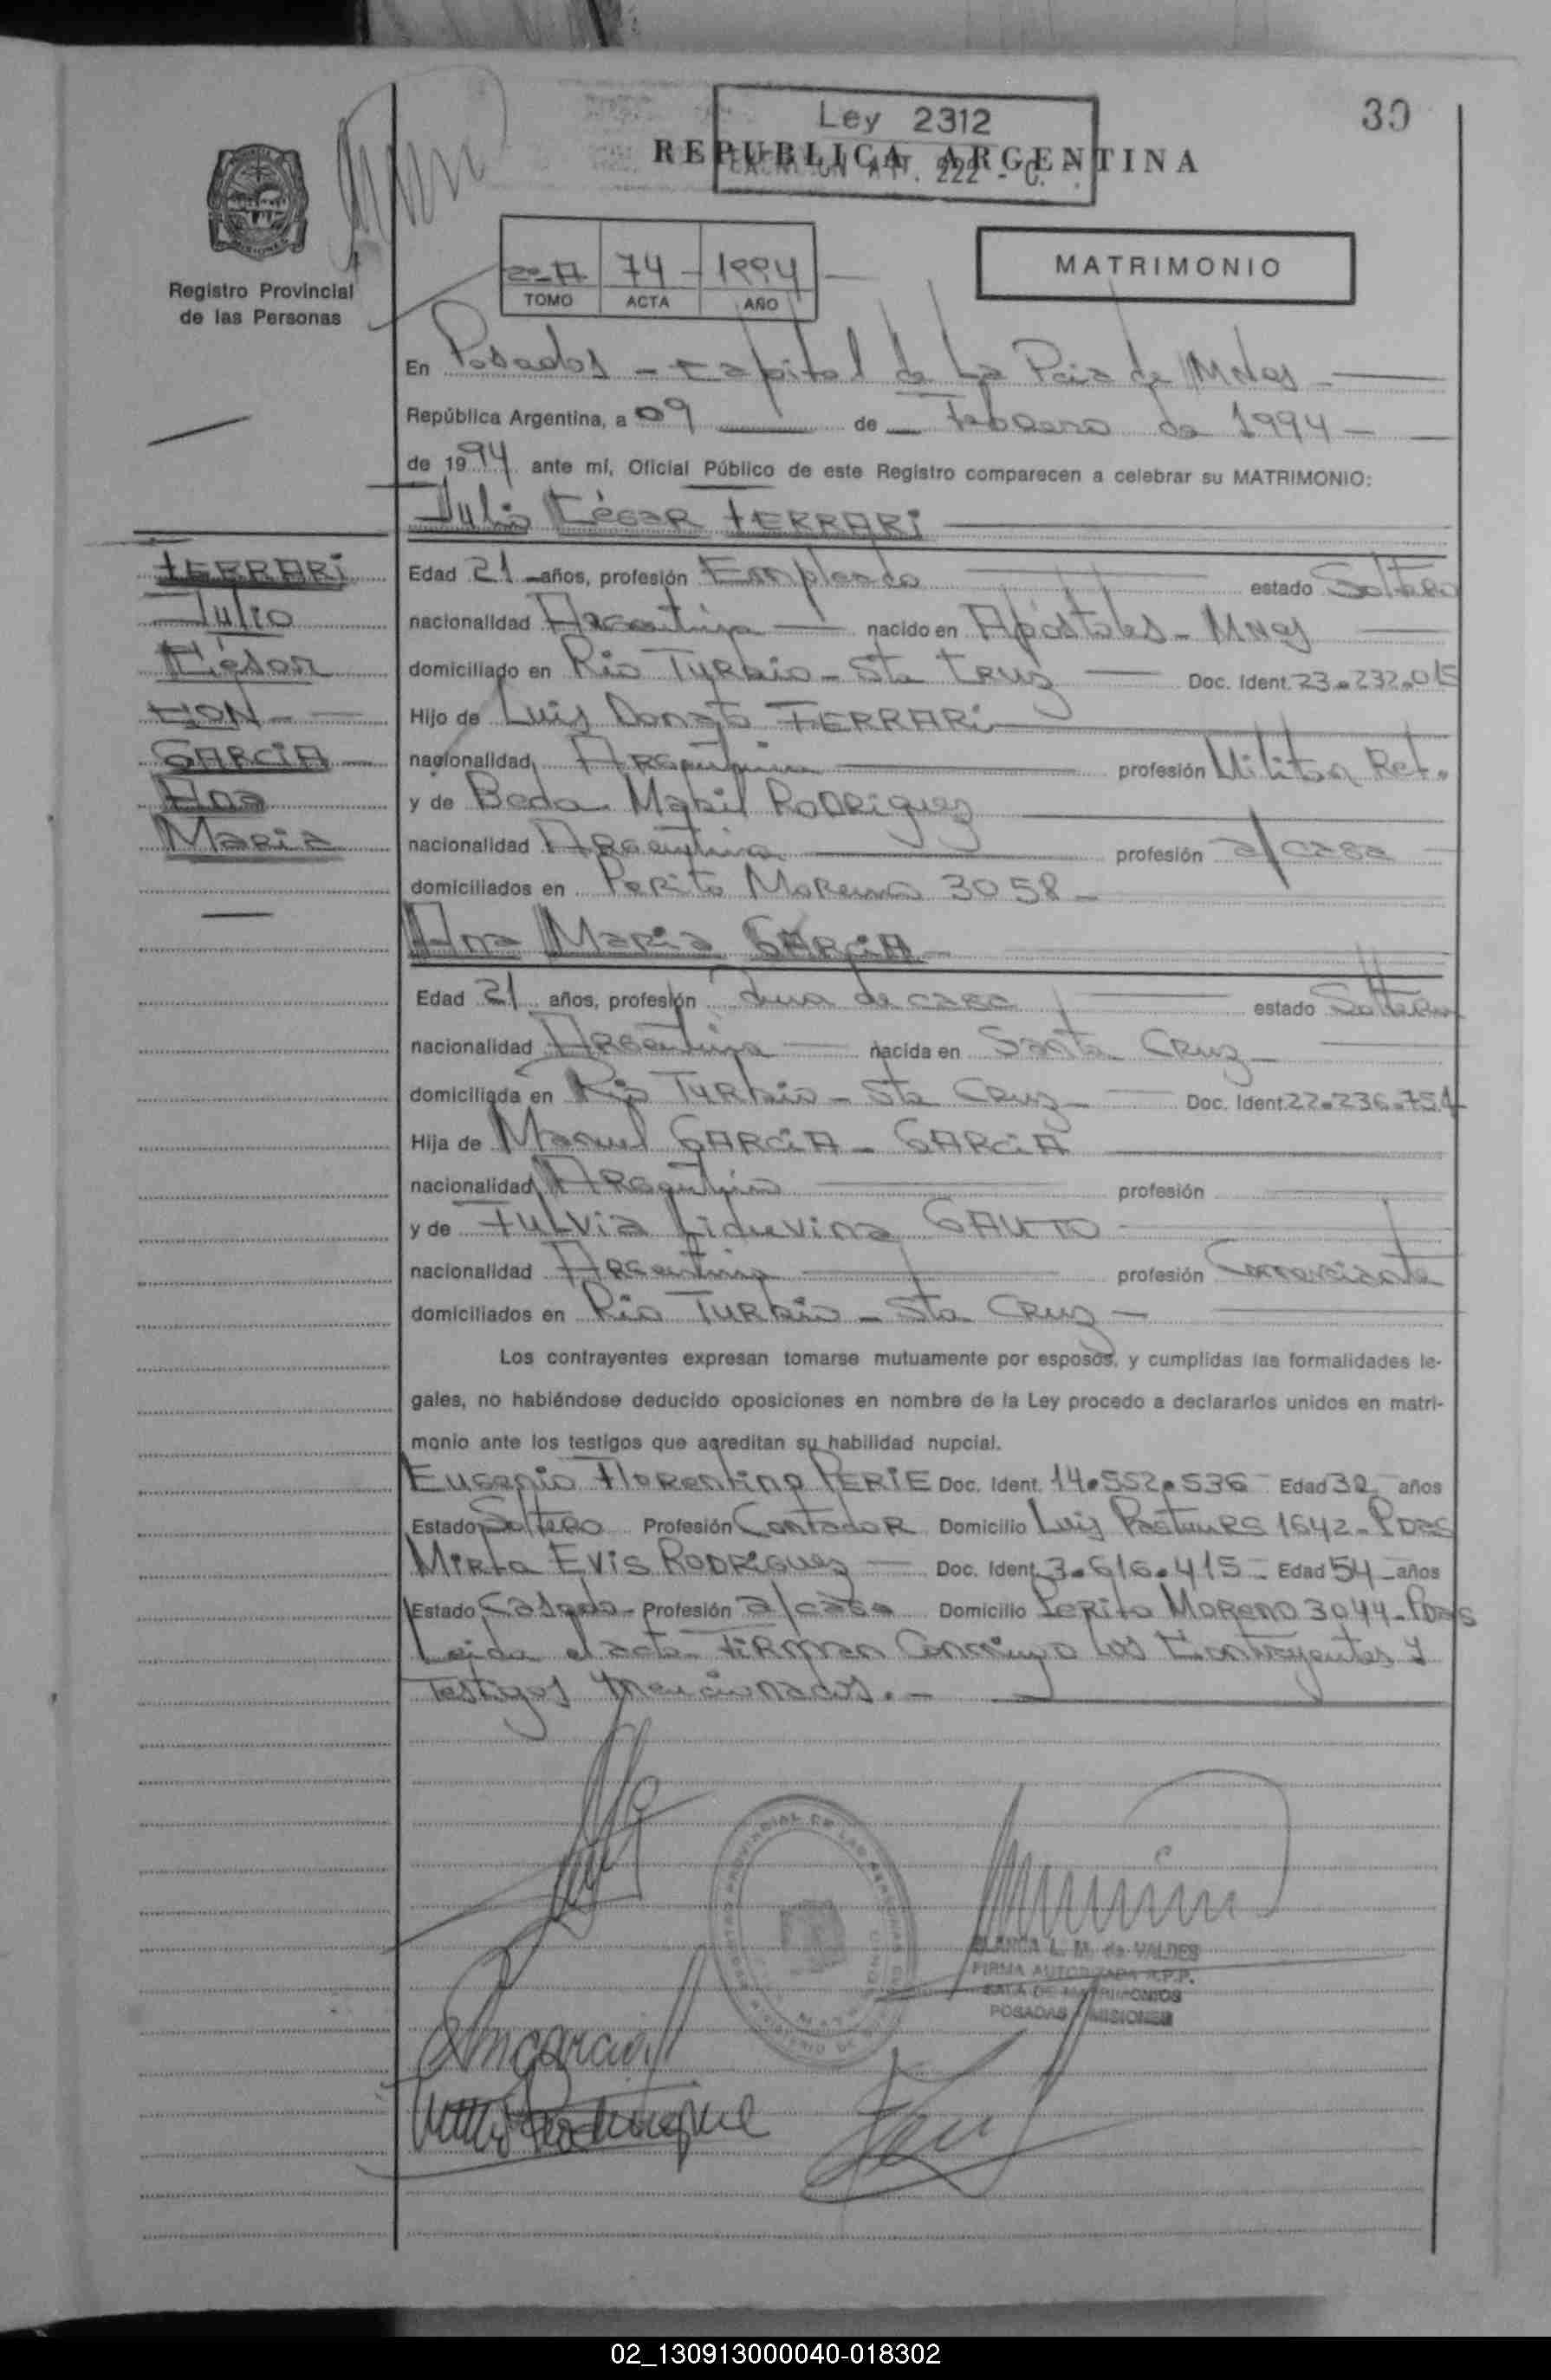 39
Ley 2312
REPUBLICA ARGENTINA
222 - C.
MATRIMONIO
2º-A 74 - 1994
TOMO ACTA AÑO
Registro Provincial
de las Personas
En Posadas - Capital de La Pcia de Mnes -
República Argentina, a 09 de Febrero de 1994 -
de 1994 ante mí, Oficial Público de este Registro comparecen a celebrar su MATRIMONIO:
Julio César FERRARi
FERRARi
Julio
César
CON -
GARCIA
Ana
Maria
Edad 21 años, profesión Empleado estado Soltero
nacionalidad Argentina nacido en Apóstoles - Mnes
domiciliado en Rio Turbio - Sta Cruz Doc. Ident. 23.232.015
Hijo de Luis Donato FERRARi
nacionalidad Argentina profesión Militar Ret.
y de Beda Mabil Rodriguez
nacionalidad Argentina profesión a/casa
domiciliados en Perito Moreno 3058 -
Ana Maria GARCiA -
Edad 21 años, profesión Ama de casa estado Soltera
nacionalidad Argentina nacida en Santa Cruz -
domiciliada en Rio Turbio - Sta Cruz - Doc. Ident. 22.236.754
Hija de Manuel GARCiA - GARCiA
nacionalidad Argentina profesión
y de Fulvia Liduvina GAUTO
nacionalidad Argentina profesión Comerciante
domiciliados en Rio Turbio - Sta Cruz -
Los contrayentes expresan tomarse mutuamente por esposos, y cumplidas las formalidades le-
gales, no habiéndose deducido oposiciones en nombre de la Ley procedo a declararlos unidos en matri-
monio ante los testigos que acreditan su habilidad nupcial.
Eugenio Florentino PERiE Doc. Ident. 14.552.536 Edad 32 años
Estado Soltero Profesión Contador Domicilio Luis Pasteurs 1642 - Pdas
Mirta Evis Rodriguez Doc. Ident. 3.616.415 - Edad 54 años
Estado Casada - Profesión a/casa Domicilio Perito Moreno 3044 - Pdas
Leida el acta firman Conmigo los Contrayentes y
Testigos mencionados. -
BLANCA L. M. de VALDES
FIRMA AUTORIZADA R.P.P.
SALA DE MATRIMONIOS
POSADAS - MISIONES
02_130913000040-018302